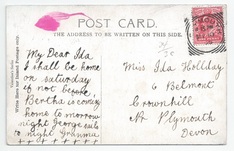 POST CARD.
THE ADDRESS TO BE WRITTEN ON THIS SIDE.
My Dear Ida
I shall be home
on Saturday
if not before,
Bertha is coming
home to morrow
night George sails
to night Grandma
Miss Ida Holliday
6 Belmont
Crownhill
Nr Plymouth
Devon